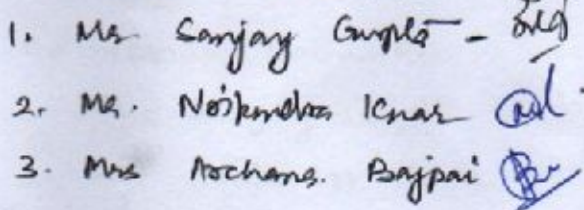 1. Mr Sanjay Gupta -
2. Mr. Kumar
3. Mrs Archana. Bajpai